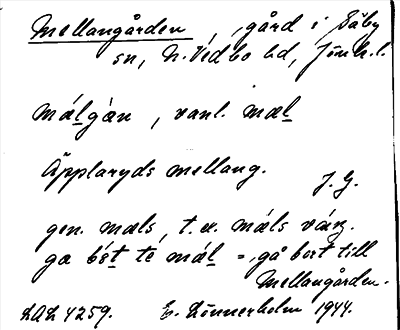 Mellangården , gård i Säby
sn, N. Vedbo hd, Jönk. l.
málgån , vanl. mæl
Äpplaryds mellang.
J. G.
gen. mæls, t.ex. mæls
ga bọ́t té mál = gå bort till
Mellangården.
LAL 4259. E. Lönnerholm 1944.